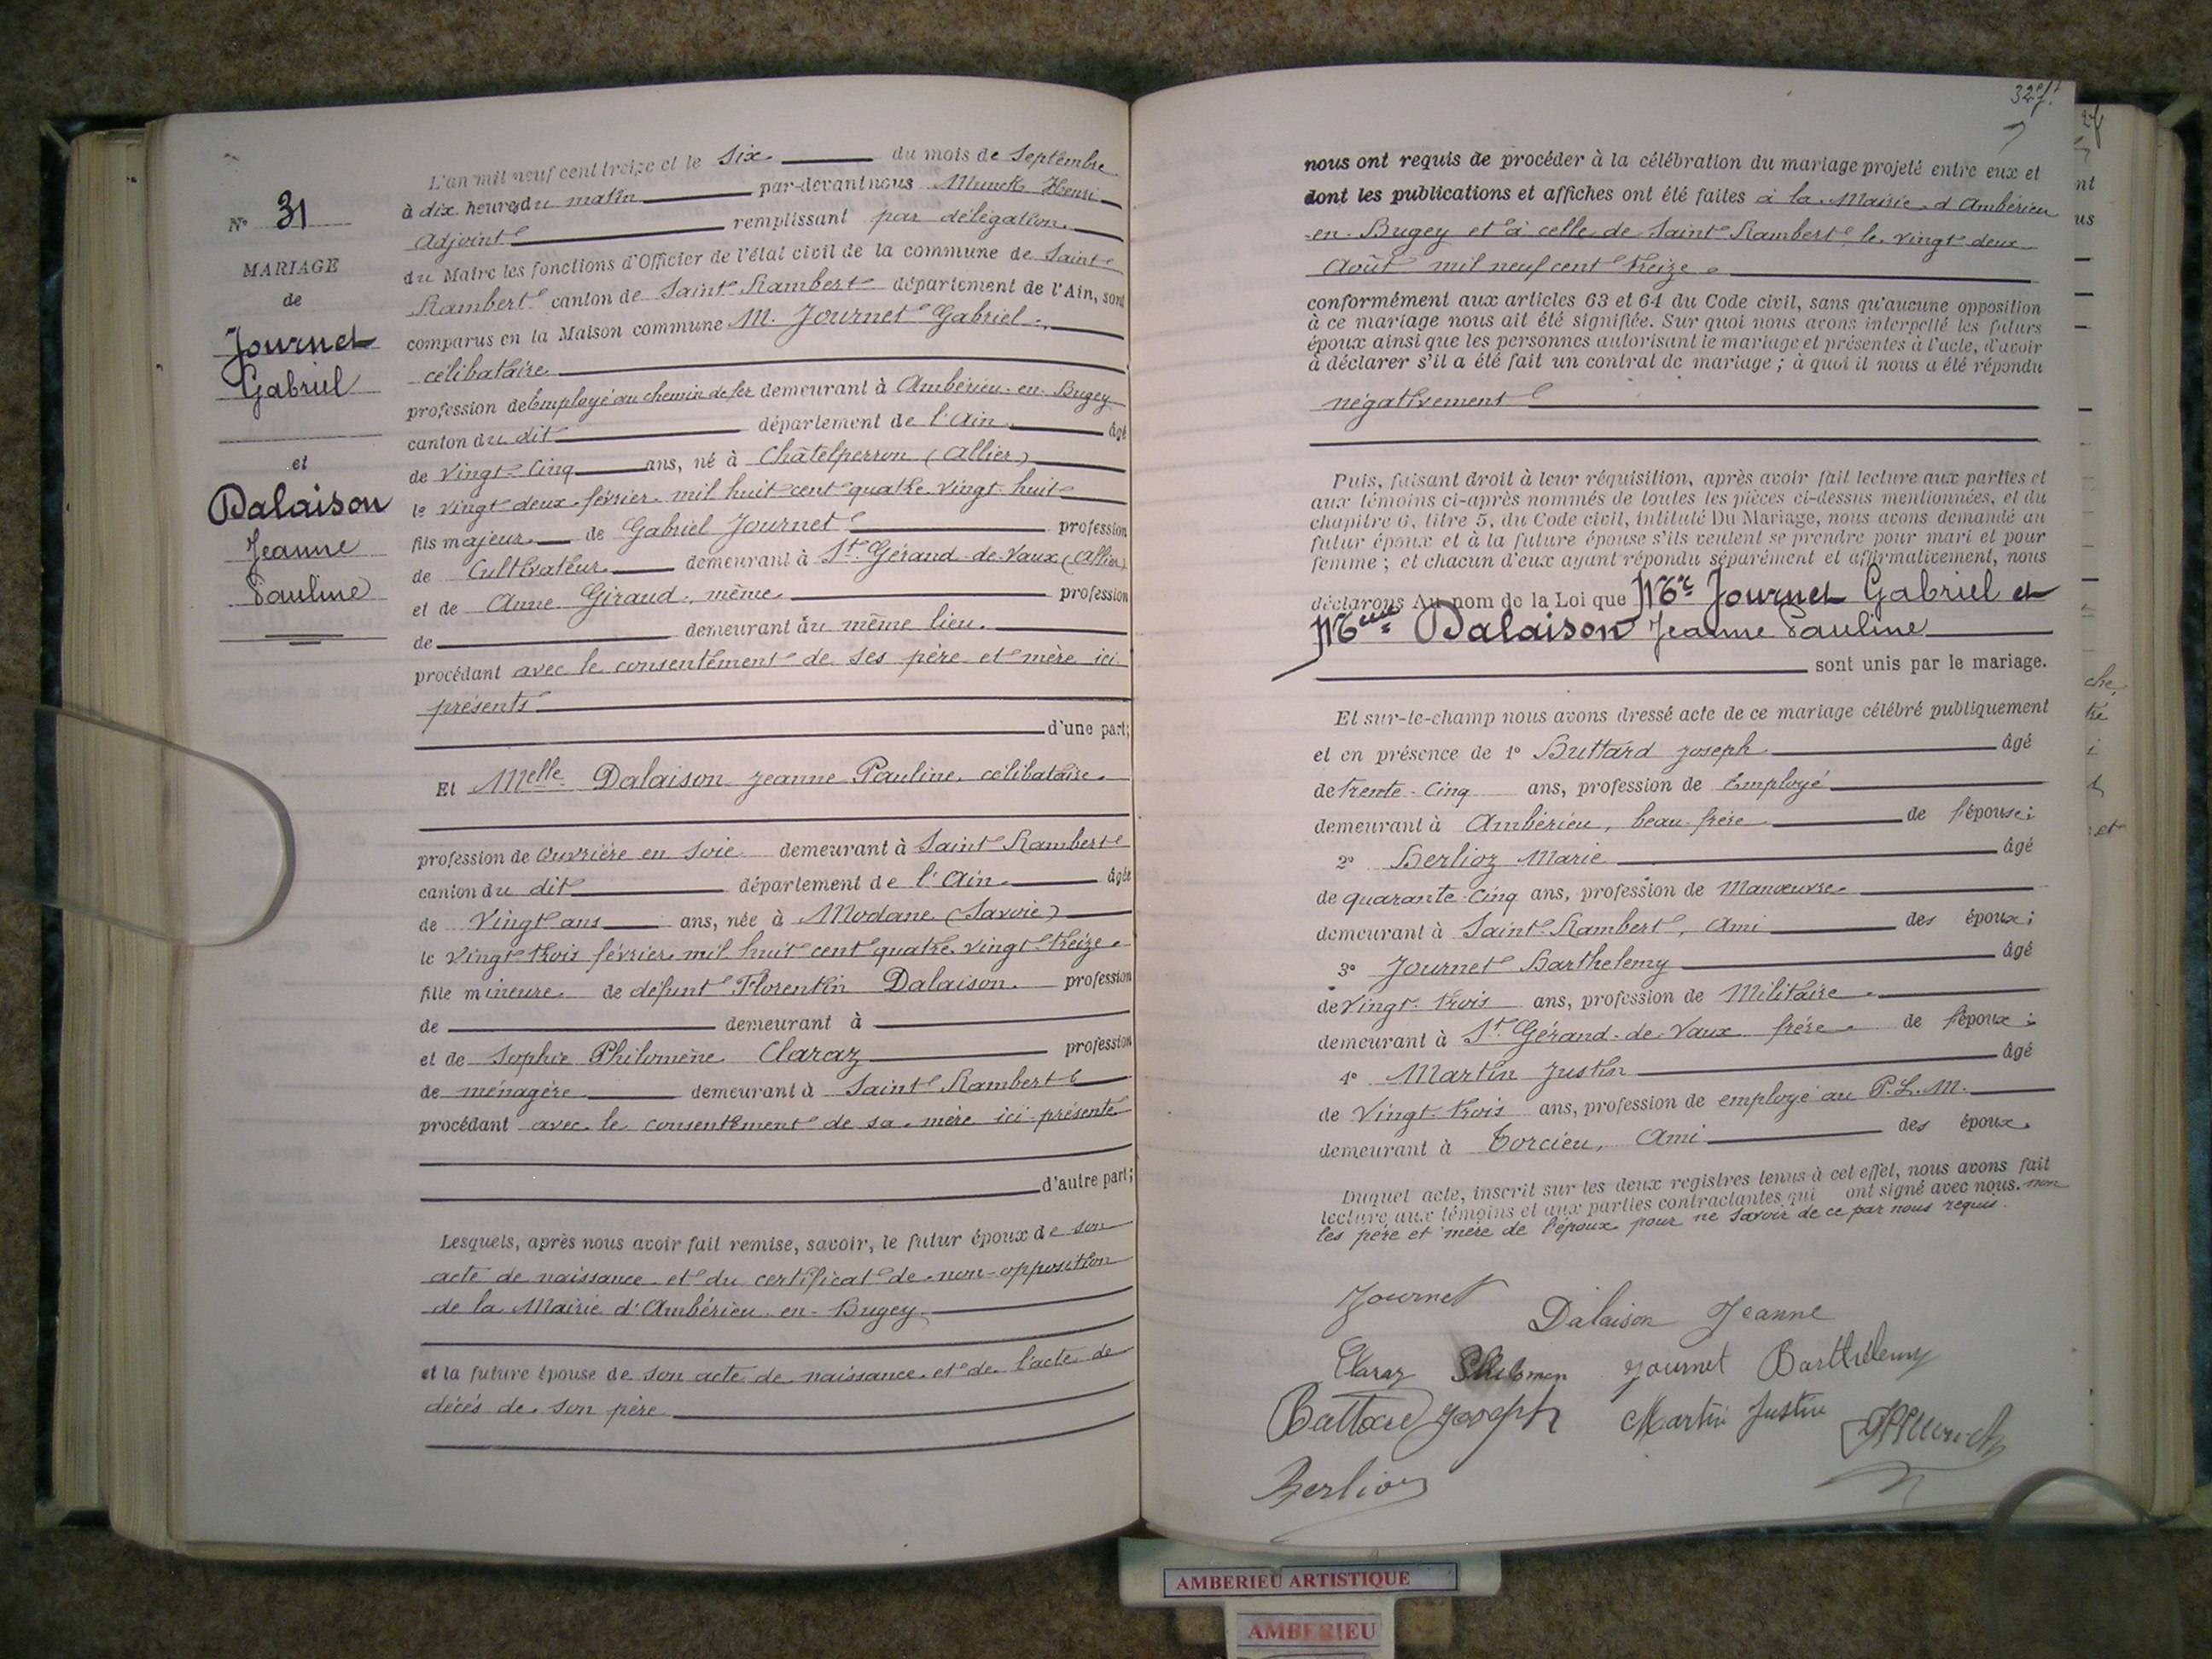 L'an mil neuf cent treize et le Six du mois de Septembre
à dix heures du matin par-devant nous Munck Henri
Adjoint remplissant par délégation
du Maire les fonctions d'Officier de l'état civil de la commune de Saint
Rambert canton de Saint Rambert département de l'Ain, sont
comparus en la Maison commune M. Journet Gabriel
célibataire
profession de Employé au chemin de fer demeurant à Ambérieu-en-Bugey
canton du dit département de l'Ain âgé
de Vingt-Cinq ans, né à Châtelperron (Allier)
le Vingt deux février mil huit cent quatre vingt huit
fils majeur de Gabriel Journet profession
de Cultivateur demeurant à St Gérand-de-Vaux (Allier)
et de Anne Giraud, même profession
de demeurant au même lieu.
procédant avec le consentement de ses père et mère ici
présents
d'une part;
Et Melle Dalaison Jeanne Pauline célibataire
profession de Ouvrière en soie demeurant à Saint Rambert
canton du dit département de l'Ain âgée
de Vingt ans ans, née à Modane (Savoie)
le Vingt trois février mil huit cent quatre vingt treize
fille mineure de défunt Florentin Dalaison profession
de demeurant à
et de Sophie Philomène Claraz profession
de ménagère demeurant à Saint Rambert
procédant avec le consentement de sa mère ici présente
d'autre part;
Lesquels, après nous avoir fait remise, savoir, le futur époux de son
acte de naissance et du certificat de non-opposition
de la Mairie d'Ambérieu-en-Bugey
et la future épouse de son acte de naissance et de l'acte de
décès de son père
No 31
MARIAGE
de
Journet
Gabriel
et
Dalaison
Jeanne
Pauline
nous ont requis de procéder à la célébration du mariage projeté entre eux et
dont les publications et affiches ont été faites à la Mairie d'Ambérieu
en-Bugey et à celle de Saint Rambert le vingt deux
Août mil neuf cent treize
conformément aux articles 63 et 64 du Code civil, sans qu'aucune opposition
à ce mariage nous ait été signifiée. Sur quoi nous avons interpellé les futurs
époux ainsi que les personnes autorisant le mariage et présentes à l'acte, d'avoir
à déclarer s'il a été fait un contrat de mariage ; à quoi il nous a été répondu
négativement
Puis, faisant droit à leur réquisition, après avoir fait lecture aux parties et
aux témoins ci-après nommés de toutes les pièces ci-dessus mentionnées, et du
chapitre 6, titre 5, du Code civil, intitulé Du Mariage, nous avons demandé au
futur époux et à la future épouse s'ils veulent se prendre pour mari et pour
femme ; et chacun d'eux ayant répondu séparément et affirmativement, nous
déclarons Au nom de la Loi que Mr Journet Gabriel et
Melle Dalaison Jeanne Pauline
sont unis par le mariage.
Et sur-le-champ nous avons dressé acte de ce mariage célébré publiquement
et en présence de 1° Buttard Joseph âgé
de trente-cinq ans, profession de Employé
demeurant à Ambérieu, beau-frère de l'épouse;
2° Berlioz Marie âgé
de quarante-cinq ans, profession de Manœuvre
demeurant à Saint Rambert, Ami des époux;
3° Journet Barthelemy âgé
de Vingt-trois ans, profession de Militaire
demeurant à St Gérand-de-Vaux frère de l'époux;
4° Martin Justin âgé
de Vingt-trois ans, profession de employé au P.L.M.
demeurant à Torcieu, Ami des époux.
Duquel acte, inscrit sur les deux registres tenus à cet effet, nous avons fait
lecture aux témoins et aux parties contractantes qui ont signé avec nous. non
les père et mère de l'époux pour ne savoir de ce par nous requis.
Journet
Dalaison Jeanne
Claraz Philomen Journet Barthelemy
Buttard Joseph Martin Justin HMunck
Berlioz
AMBERIEU ARTISTIQUE
AMBERIEU